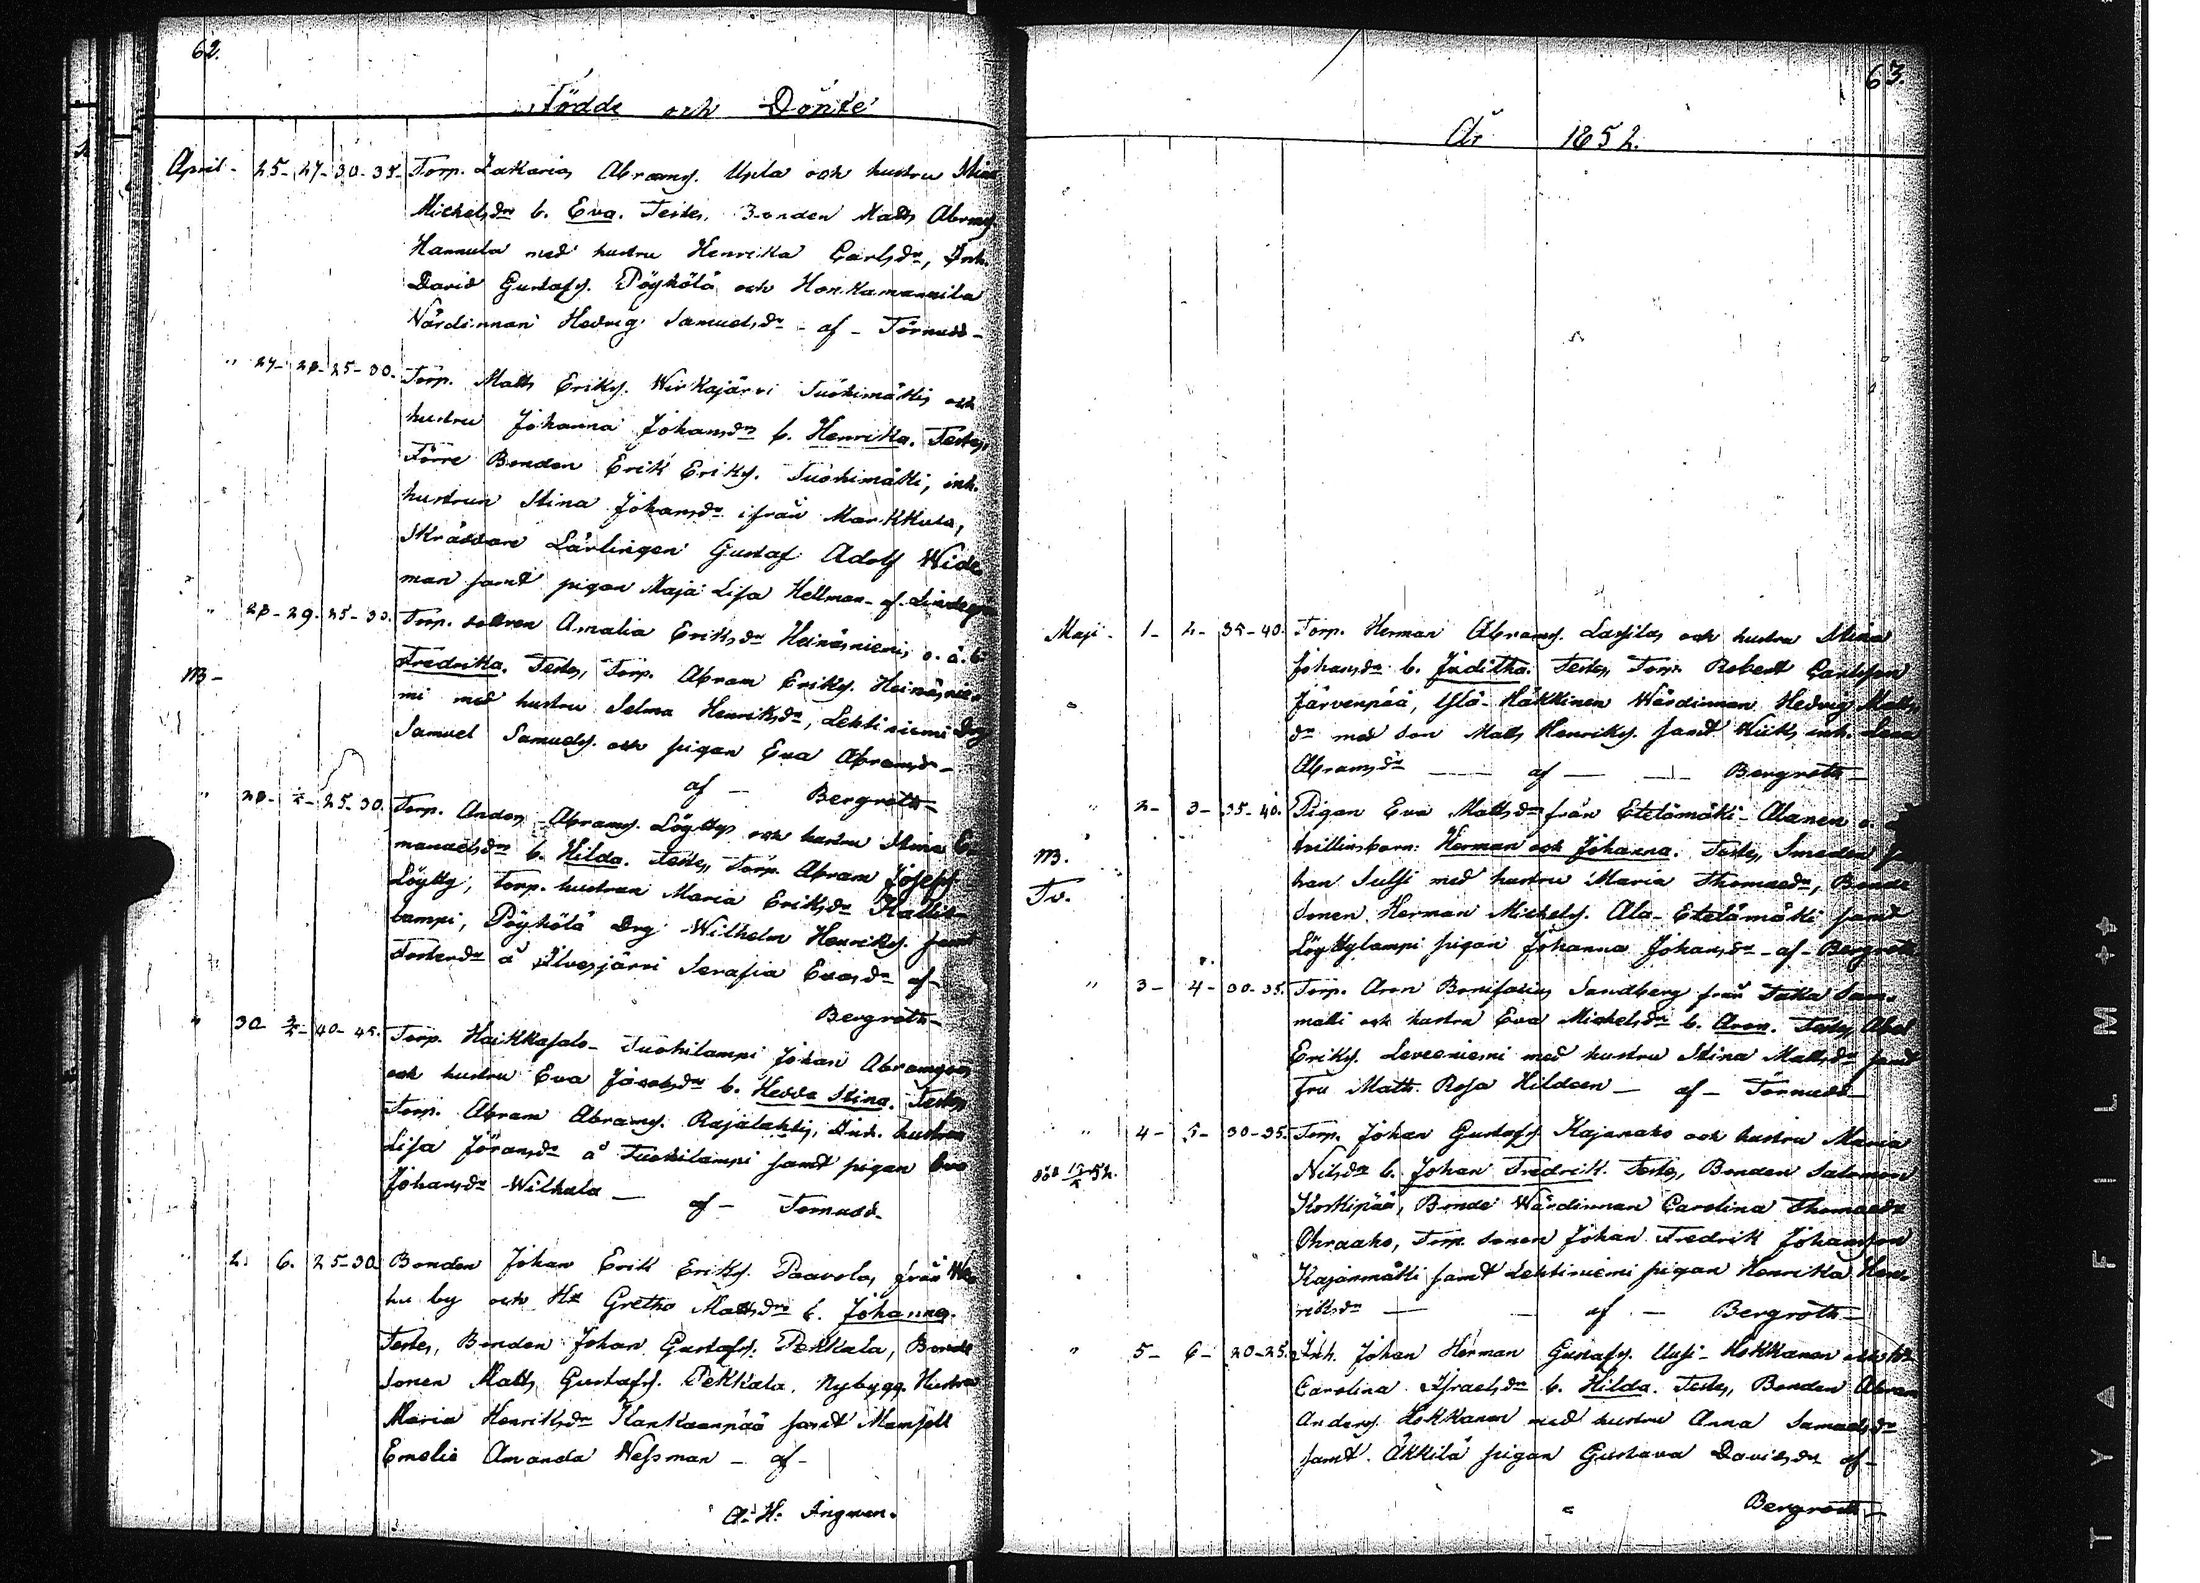 62.
Födde och Döpte
April - 25 - 27 - 30 - 35 - Torp. Zakarias Abramss. och hustru Stina
Michelsdr b. Eva. Testes, Bonden Matts Abramss.
Hannula med hustru Henrika Carlsdr, Inh.
David Gustafss. Pöyhölä och Honkamannila
Wärdinnan Hedvig Samuelsdr - af - Törnudd -
" 27 - 28 - 25 - 30. Torp. Matts Erikss. Wirkajärvi Tuohimäkis och
hustru Johanna Johansdr b. Henrika. Testes,
Förre Bonden Erik Erikss. Tuohimäki, inh.
hustrun Stina Johansdr ifrån Markkula,
Skräddare Lärlingen Gustaf Adolf Wide
man samt pigan Maja Lisa Hellman - af -
" 28 - 29 - 25 - 30. Torp. dottren Amalia Eriksdr Heinäsniemis o. ä. b.
Fredrika. Testes, Torp. Abram Erikss. Heinäsnie-
mi med hustru Selma Henriksdr, Lehtiniemi Drg
Samuel Samuelss. och pigan Eva Abramsdr -
af - Bergroth -
" 28 - 25 - 30. Torp. Anders Abramss. Löyttys och hustru Stina E
manuelsdr b. Hilda. Testes, Torp. Abram Josefss.
Löytty, Torp. hustrun Maria Eriksdr Kallio-
lampi, Pöyhölä Drg Wilhelm Henrikss. samt
Fosterdr å Ilvesjärvi Serafia Evasdr af -
Bergroth -
" 30 - 40 - 45. Torp. Haikkasalo - Tuohilampi Johan Abramsson
och hustru Eva Jacobsdr b. Hedda Stina. Testes
Torp. Abram Abramss. Rajalahtis, Inh. hustrun
Lisa Jöransdr å Tuohilampi samt pigan Eva
Johansdr Wilhula - af - Törnudd -
" 2. 6. 25 - 30. Bonden Johan Erik Erikss. Paavolas från
hu by och Hu Gretha Mattsdr b. Johannes.
Testes, Bonden Johan Gustafss. Pekkala, Bonde
sonen Matts Gustafss. Pekkala, Nybygg. Hustru
Maria Henriksdr Kankaanpää samt Mamsell
Emelie Amanda Wessman - af -
A. H. Ingman.
63.
År 1852.
Maji - 1 - 2 - 35 - 40. Torp. Herman Abramss. Lassilas och hustru Stina
Johansdr b. Juditha. Testes, Torp. Robert Carlsson
Järvenpää, Ylä-Häkkinen Wärdinnan Hedvig Matts
dr med son Matts Henrikss. samt Wiiks inh. Lena
Abramsdr - af - Bergroth -
" 2 - 3 - 35 - 40. Pigan Eva Mattsdr från Etelämäki-Alanen o. ä.
tvillingbarn: Herman och Johanna. Testes, Smeden Jo
han Sulsi med hustru Maria Thomasdr, Bonde
Sonen Herman Michelss. Ala-Etelämäki samt
Löyttylampi pigan Johanna Johansdr - af - Bergroth
" 3 - 4 - 30 - 35. Torp. Aron Bonifacius Sandberg från Taka Sam-
malli och hustru Eva Michelsdr b. Aron. Testes, Abel
Erikss. Leveeniemi med hustru Stina Mattsdr samt
Fru Math. Rosa Hildeen - af - Törnudd -
" 4 - 5 - 30 - 35. Torp. Johan Gustafss. Kajanaho och hustru Maria
Nilsdr b. Johan Fredrik. Testes, Bonden Salomon
Koskipää, Bonde Wärdinnan Carolina Thomasdr
Ohraaho, Torp. sonen Johan Fredrik Johansson
Kajanmäki samt Lehtiniemi pigan Henrika Hen
riksdr - af - Bergroth -
" 5 - 6 - 20 - 25. Inh. Johan Herman Gustafss. Uusi-Hokkanen
Carolina Israelsdr b. Hilda. Testes, Bonden Abram
Anderss. Hokkanen med hustru Anna Samuelsdr
samt Äkkilä pigan Gustava Davidsdr af -
Bergroth -
TYAFILM